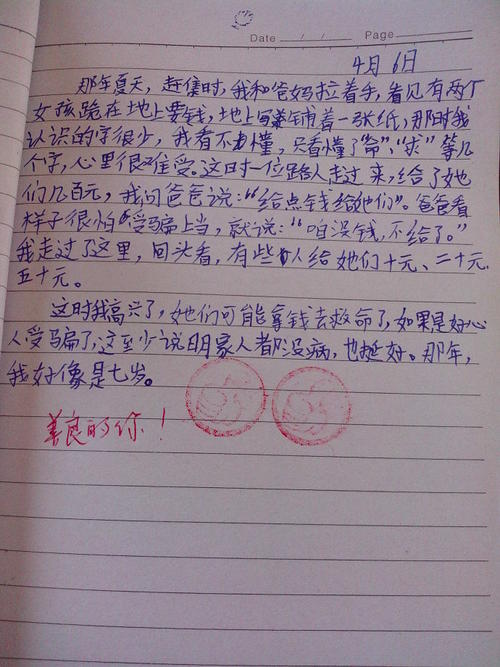 Date / / Page
4月6日
那年夏天，赶集时，我和爸妈拉着手，看见有两个
女孩跪在地上要钱，地上铺着一张纸，那时我
认识的字很少，我看不懂，只看懂了“命”、“求”等几
个字，心里很难受。这时一位路人走过来，给了她
们几百元，我问爸爸说：“给点钱给她们”。爸爸看
样子很怕受骗上当，就说：“咱没钱，不给了。”
我走过了这里，回头看，有些人给她们十元、二十元
五十元。
这时我高兴了，她们可能拿钱去救命了，如果是好心
人受骗了，这至少说明家人都没病，也挺好。那年，
我好像是七岁。
善良的你！